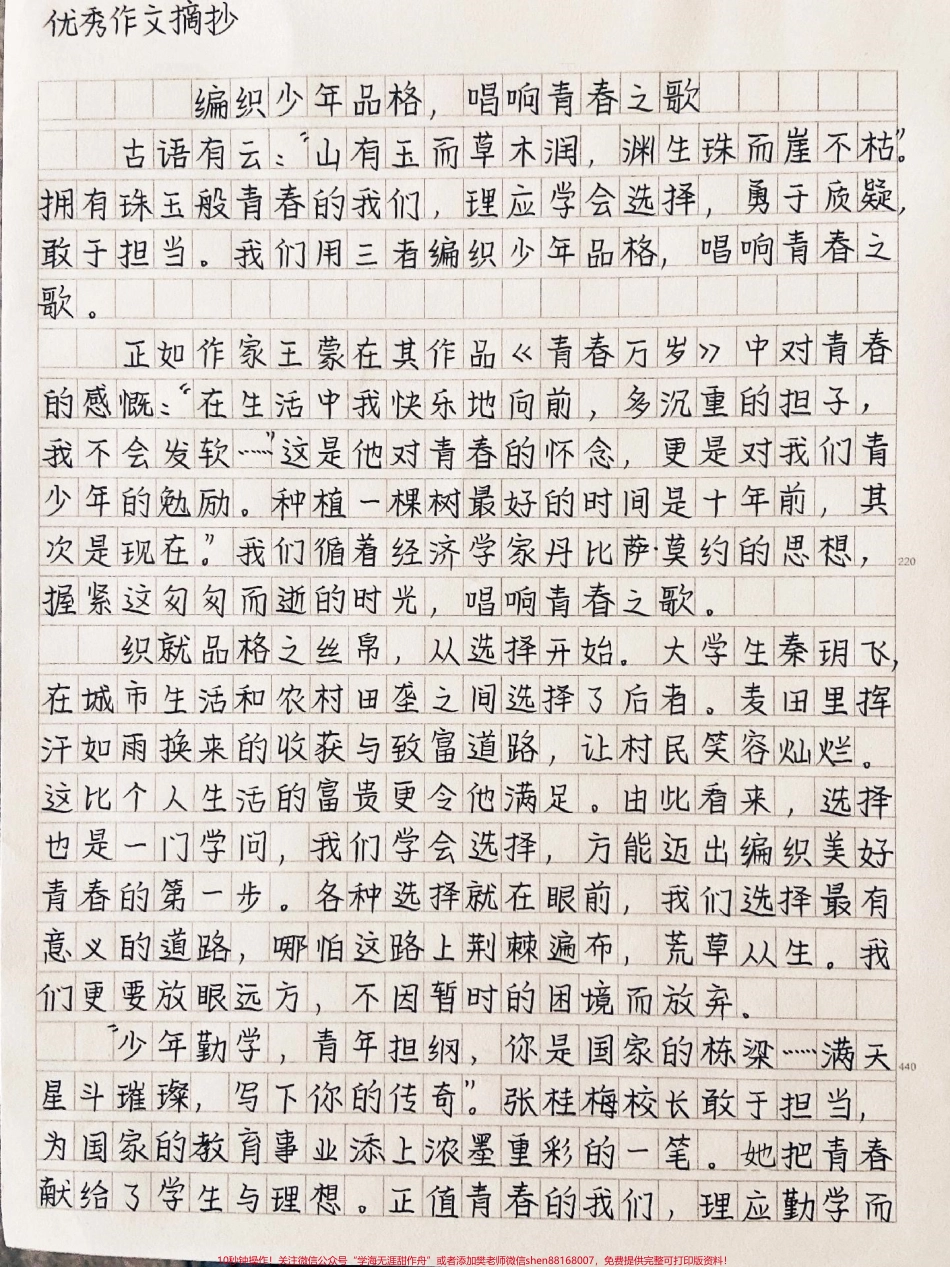 优秀作文摘抄
编织少年品格，唱响青春之歌
古语有云：“山有玉而草木润，渊生珠而崖不枯”。
拥有珠玉般青春的我们，理应学会选择，勇于质疑，
敢于担当。我们用三者编织少年品格，唱响青春之
歌。
正如作家王蒙在其作品《青春万岁》中对青春
的感慨：“在生活中我快乐地向前，多沉重的担子，
我不会发软……”这是他对青春的怀念，更是对我们青
少年的勉励。种植一棵树最好的时间是十年前，其
次是现在。”我们循着经济学家丹比萨·莫约的思想，
220
握紧这匆匆而逝的时光，唱响青春之歌。
织就品格之丝帛，从选择开始。大学生秦玥飞，
在城市生活和农村田垄之间选择了后者。麦田里挥
汗如雨换来的收获与致富道路，让村民笑容灿烂。
这比个人生活的富贵更令他满足。由此看来，选择
也是一门学问，我们学会选择，方能迈出编织美好
青春的第一步。各种选择就在眼前，我们选择最有
意义的道路，哪怕这路上荆棘遍布，荒草从生。我
们更要放眼远方，不因暂时的困境而放弃。
“少年勤学，青年担纲，你是国家的栋梁……满天
440
星斗璀璨，写下你的传奇”。张桂梅校长敢于担当，
为国家的教育事业添上浓墨重彩的一笔。她把青春
献给了学生与理想。正值青春的我们，理应勤学而
10秒钟操作！关注微信公众号“学海无涯甜作舟”或者添加樊老师微信shen88168007，免费提供完整可打印版资料！